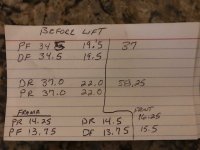 BEFORE LIFT
PF 34.5 19.5 37
DF 34.5 19.5
DR 37.0 22.0 58.25
PR 37.0 22.0
FRAME FRNT
PR 14.25 DR 14.5 16.25
PF 13.75 DF 13.75 15.5